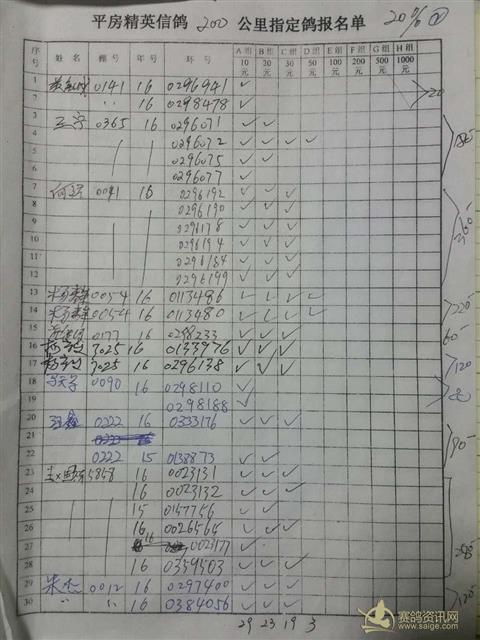 平房精英信鸽 200 公里指定鸽报名单 20%
序号 姓名 棚号 年号 环号 A组10元 B组20元 C组30元 D组50元 E组100元 F组200元 G组500元 H组1000元
1 0141 16 0296941 ✓
2 〃 16 0298478 ✓ 20
3 王宇 0365 16 0296071 ✓ ✓
4 0296072 ✓ ✓ ✓ ✓
5 0296075 ✓ ✓
6 0296077 ✓
7 0041 16 0296192 ✓ ✓ ✓
8 0296190 ✓ ✓ ✓
9 0296178 ✓ ✓ ✓
10 0296194 ✓ ✓ ✓
11 0296184 ✓ ✓ ✓
12 0296199 ✓ ✓ ✓
13 0054 16 0113486 ✓ ✓ ✓ ✓
14 0054 16 0113480 ✓ ✓ ✓ ✓ 220
15 0177 15 0298233 ✓ ✓ ✓ 60
16 7025 16 0133976 ✓ ✓ ✓
17 7025 16 0296138 ✓ ✓ ✓ 120
18 0090 16 0298110 ✓
19 0298188 ✓
20 0222 16 0333176 ✓ ✓ ✓
21
22 0222 15 0138873 ✓ ✓ 90
23 5858 16 0023131 ✓ ✓ ✓
24 16 0023132 ✓ ✓ ✓
25 15 0157756 ✓ ✓
26 16 0026565 ✓ ✓
27 16 0023177 ✓
28 16 0359503 ✓ ✓ ✓
29 朱杰 0012 16 0297400 ✓ ✓ ✓
30 〃 〃 16 0384056 ✓ ✓ ✓ 120
29 23 19 3
赛鸽资讯网
www.saige.com